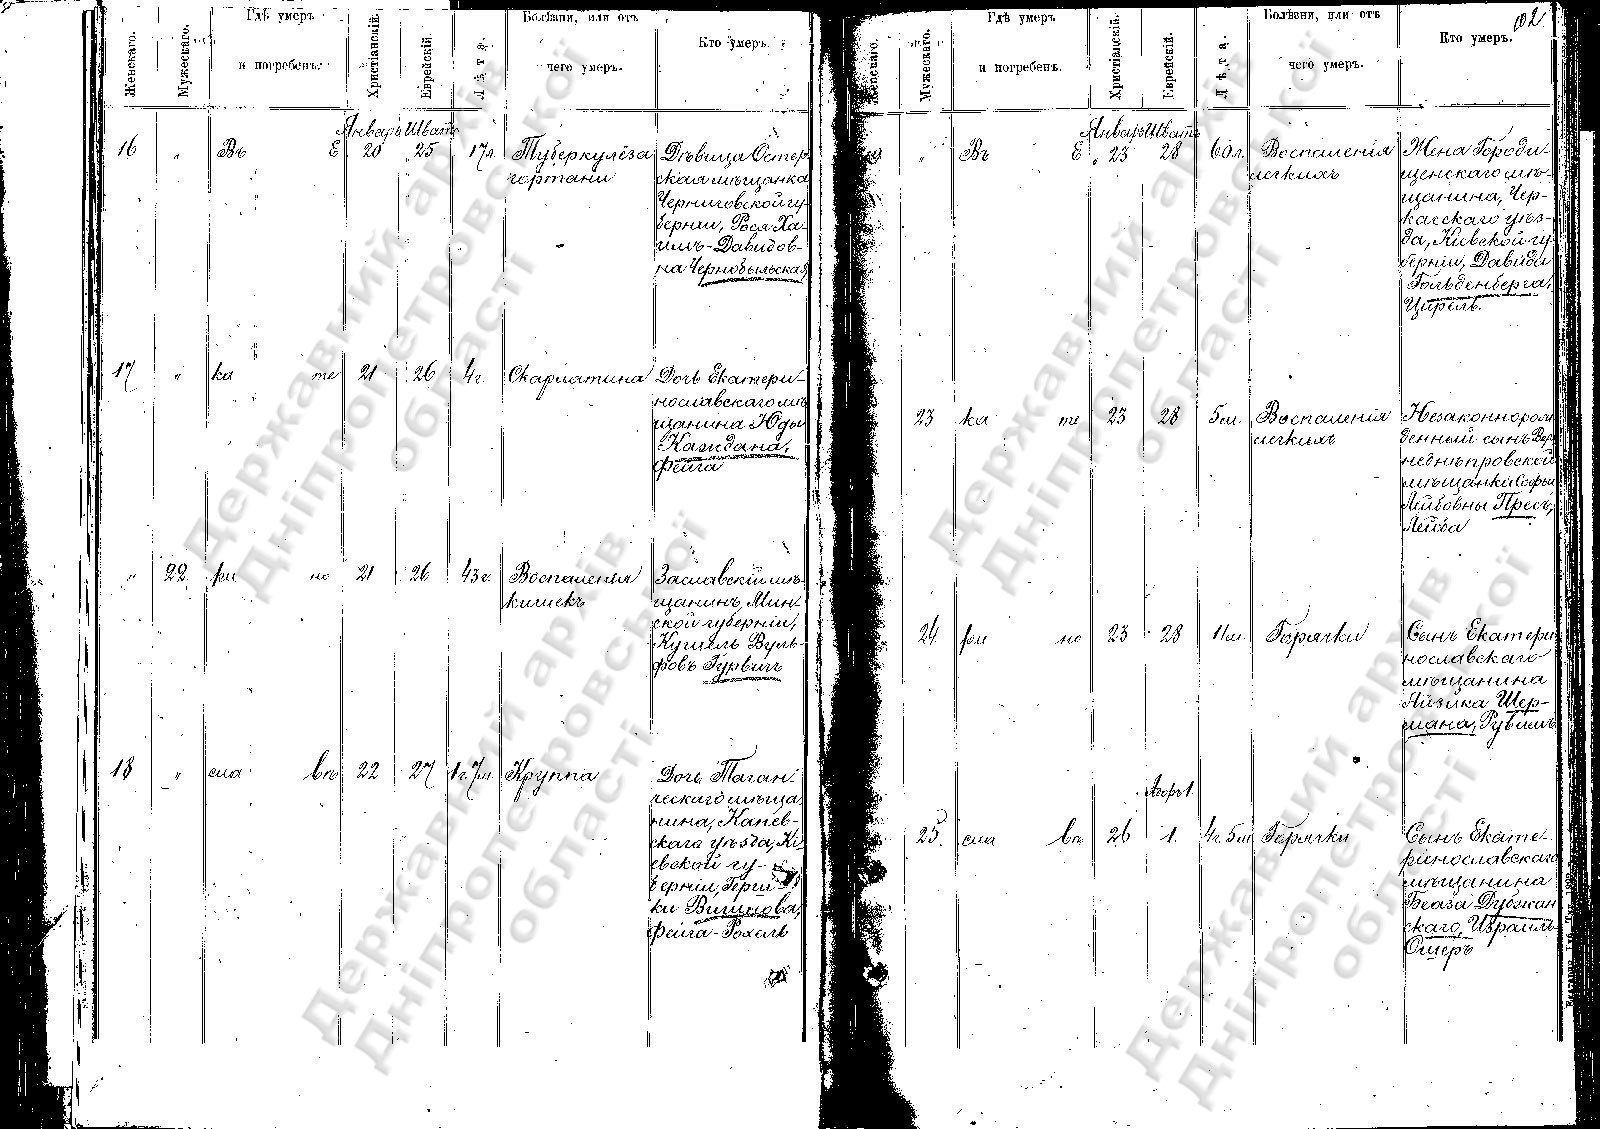 Женскаго.
Мужескаго.
Гдѣ умеръ
и погребенъ.
Христіанскій.
Еврейскій.
Лѣта.
Болѣзни, или отъ
чего умеръ.
Кто умеръ.
Январь Шватъ
16 " Въ Е 20 25 17л. Туберкулёза Дѣвица Остер
гортани ская мѣщанка
Черниговской гу
берніи, Рося Ха-
имъ-Давидов-
на Чернобыльская
17 " ка те 21 26 4г. Скарлатина Дочь Екатери-
нославскаго мѣ
щанина Юды
Каждана,
Фейга
" 22 ри но 21 26 43г. Воспаленія Заславскій мѣ-
кишекъ щанинъ, Мин-
ской губерніи,
Кушель Вуль-
фовъ Гурвичъ
18 " сла въ 22 27 1г. 7м. Круппа Дочь Таган-
ческаго мѣща
нина, Канев-
скаго уѣзда, Кі
евской гу-
берніи, Герш
ки Вишнова,
Фейга-Рохель
102
Женскаго.
Мужескаго.
Гдѣ умеръ
и погребенъ.
Христіанскій.
Еврейскій.
Лѣта.
Болѣзни, или отъ
чего умеръ.
Кто умеръ.
Январь Шватъ
19 " Въ Е 23 28 60л. Воспаленія Жена Городи-
легкихъ щенскаго мѣ-
щанина, Чер-
касскаго уѣз-
да, Кіевской гу
берніи, Давида
Гольденберга,
Цирель.
23 ка те 23 28 5м. Воспаленія Незаконнорож
легкихъ денный сынъ Вер
неднѣпровской
мѣщанки Софьи
Лейбовны Пресъ,
Лейба
24 ри но 23 28 11м. Горячки Сынъ Екатери
нославскаго
мѣщанина
Айзика Шер-
мана, Рувимъ
Адоръ 1.
25. сла въ 26 1. 4г. 5м Горячки Сынъ Екате-
ринославскаго
мѣщанина
Беаза Дубжан
скаго, Израиль-
Ошеръ
Державний архів
Дніпропетровської
області